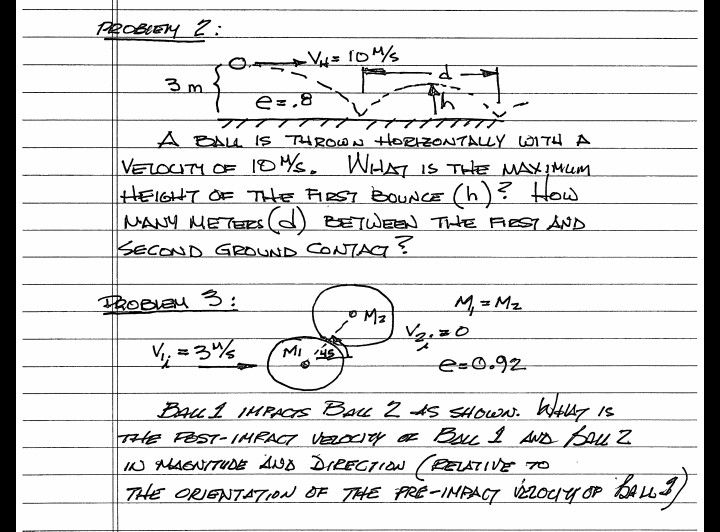 PROBLEM 2:
V_H = 10 M/S
3 m
d
e = .8
h
A BALL IS THROWN HORIZONTALLY WITH A
VELOCITY OF 10 M/S. WHAT IS THE MAXIMUM
HEIGHT OF THE FIRST BOUNCE (h)? HOW
MANY METERS (d) BETWEEN THE FIRST AND
SECOND GROUND CONTACT?
PROBLEM 3:
M2
M1 = M2
V2i = 0
V1i = 3 M/S
M1
45
e = 0.92
BALL 1 IMPACTS BALL 2 AS SHOWN. WHAT IS
THE POST-IMPACT VELOCITY OF BALL 1 AND BALL 2
IN MAGNITUDE AND DIRECTION (RELATIVE TO
THE ORIENTATION OF THE PRE-IMPACT VELOCITY OF BALL 1)